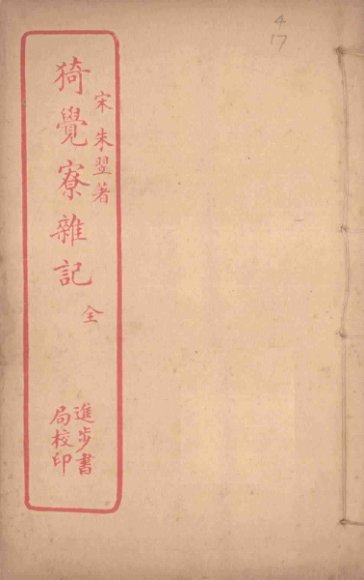 4
17
宋 朱翌著
猗覺寮雜記 全
進步書
局校印